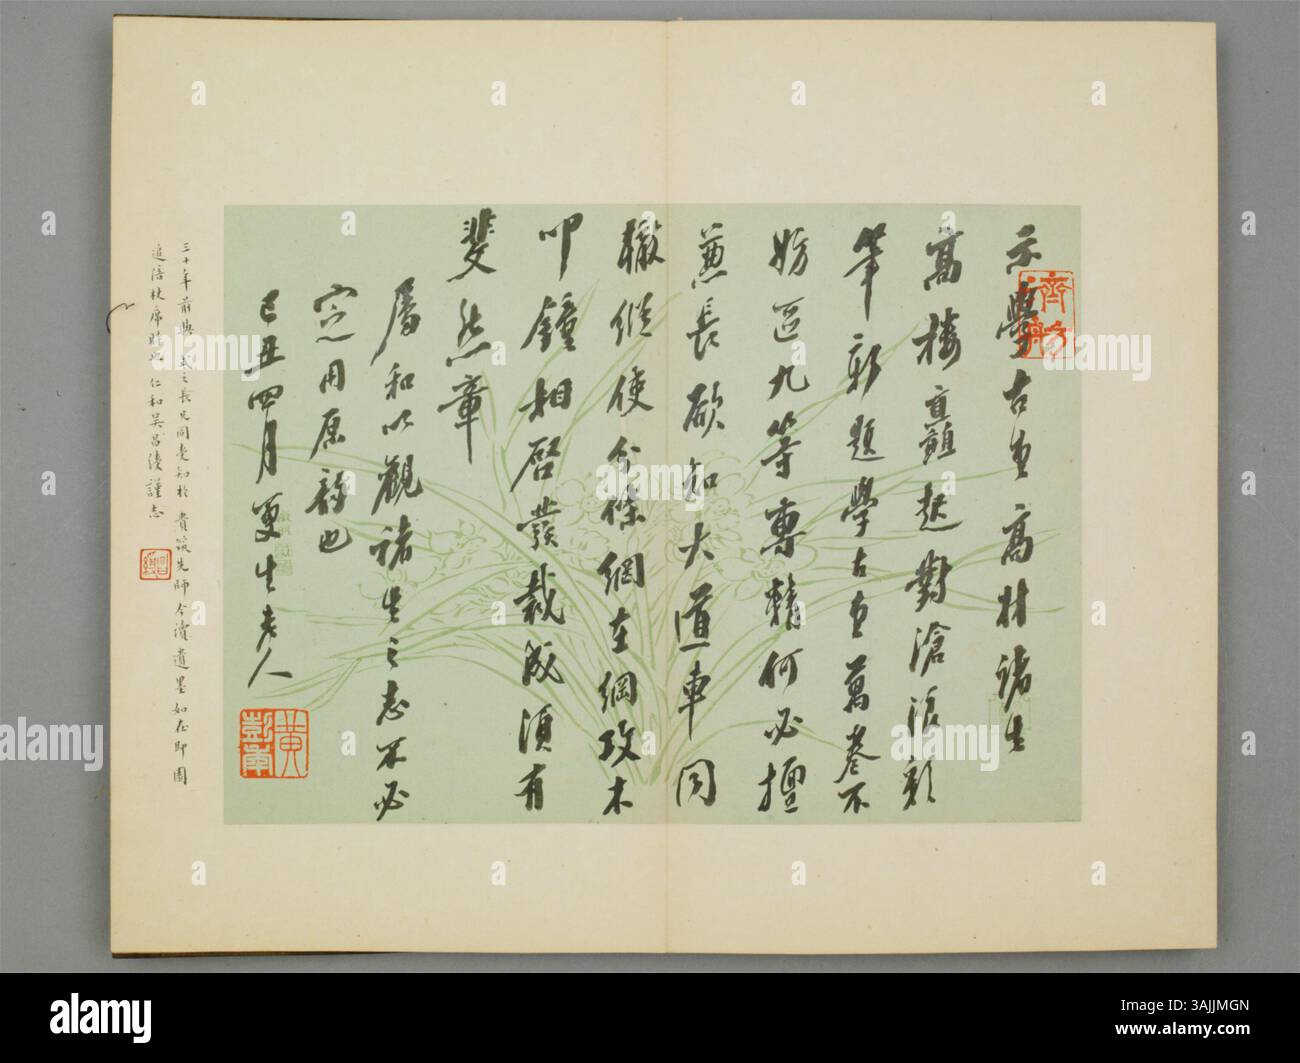 示學古堂高材諸生
高樓直韻起對滄浪彩
筆新題學古堂萬卷不
妨區九等專精何必擅
兼長欲知大道車同
轍縱使分條網在綱攻木
叩鐘相啓發裁成須有
斐然章
屬和以觀諸生之志不必
定用原韻也
己丑四月更生老人
黃彭年
三十年前與 式之長兄同受知於 貴筑先師今讀遺墨如在即園
追陪杖席時也 仁和吳昌綬謹志
a
alamy
Image ID: 3AJJMGN
www.alamy.com